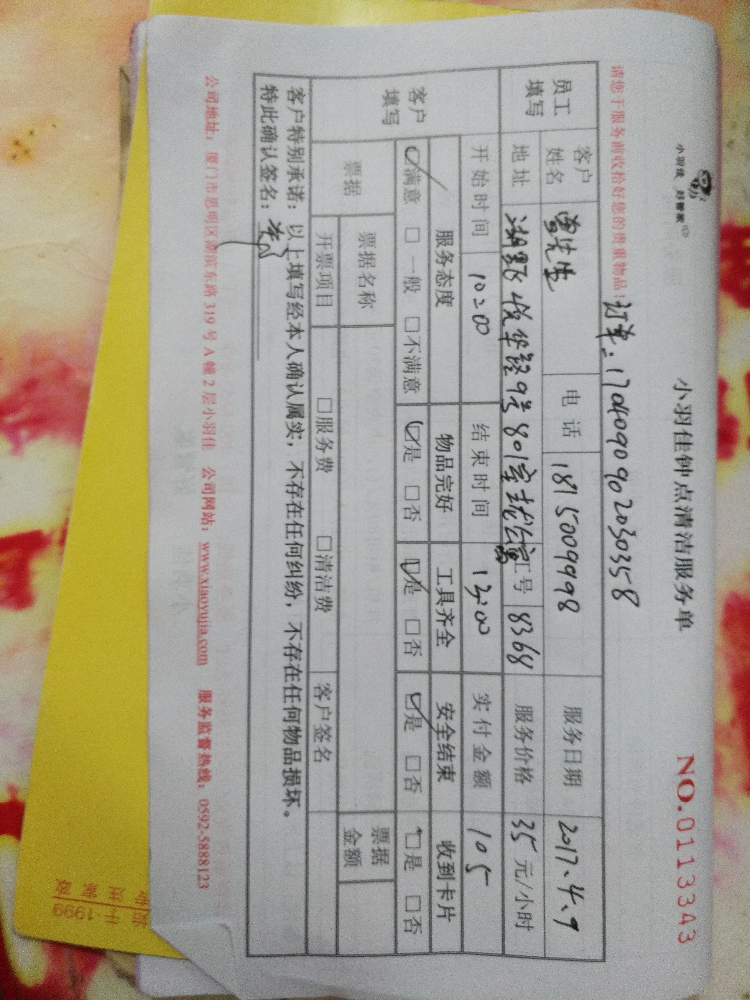 小羽佳 好管家
小羽佳钟点清洁服务单
NO.0113343
请您于服务前收拾好您的贵重物品!
订单:1704090902030358
员工填写 客户姓名 曾先生 电话 1815009998 服务日期 2017.4.9
地址 悦华路9号801室 工号 8368 服务价格 35元/小时
开始时间 10:00 结束时间 13:00 实付金额 105
客户填写 服务态度 物品完好 工具齐全 安全结束 收到卡片
☑满意 □一般 □不满意 ☑是 □否 ☑是 □否 ☑是 □否 □是 □否
票据 票据名称 票据金额
开票项目 □服务费 □清洁费 客户签名
客户特别承诺:以上填写经本人确认属实,不存在任何纠纷,不存在任何物品损坏。
特此确认签名:
公司地址:厦门市思明区湖滨东路319号A幢2层小羽佳 公司网站:www.xiaoyujia.com 服务监督热线:0592-5888123